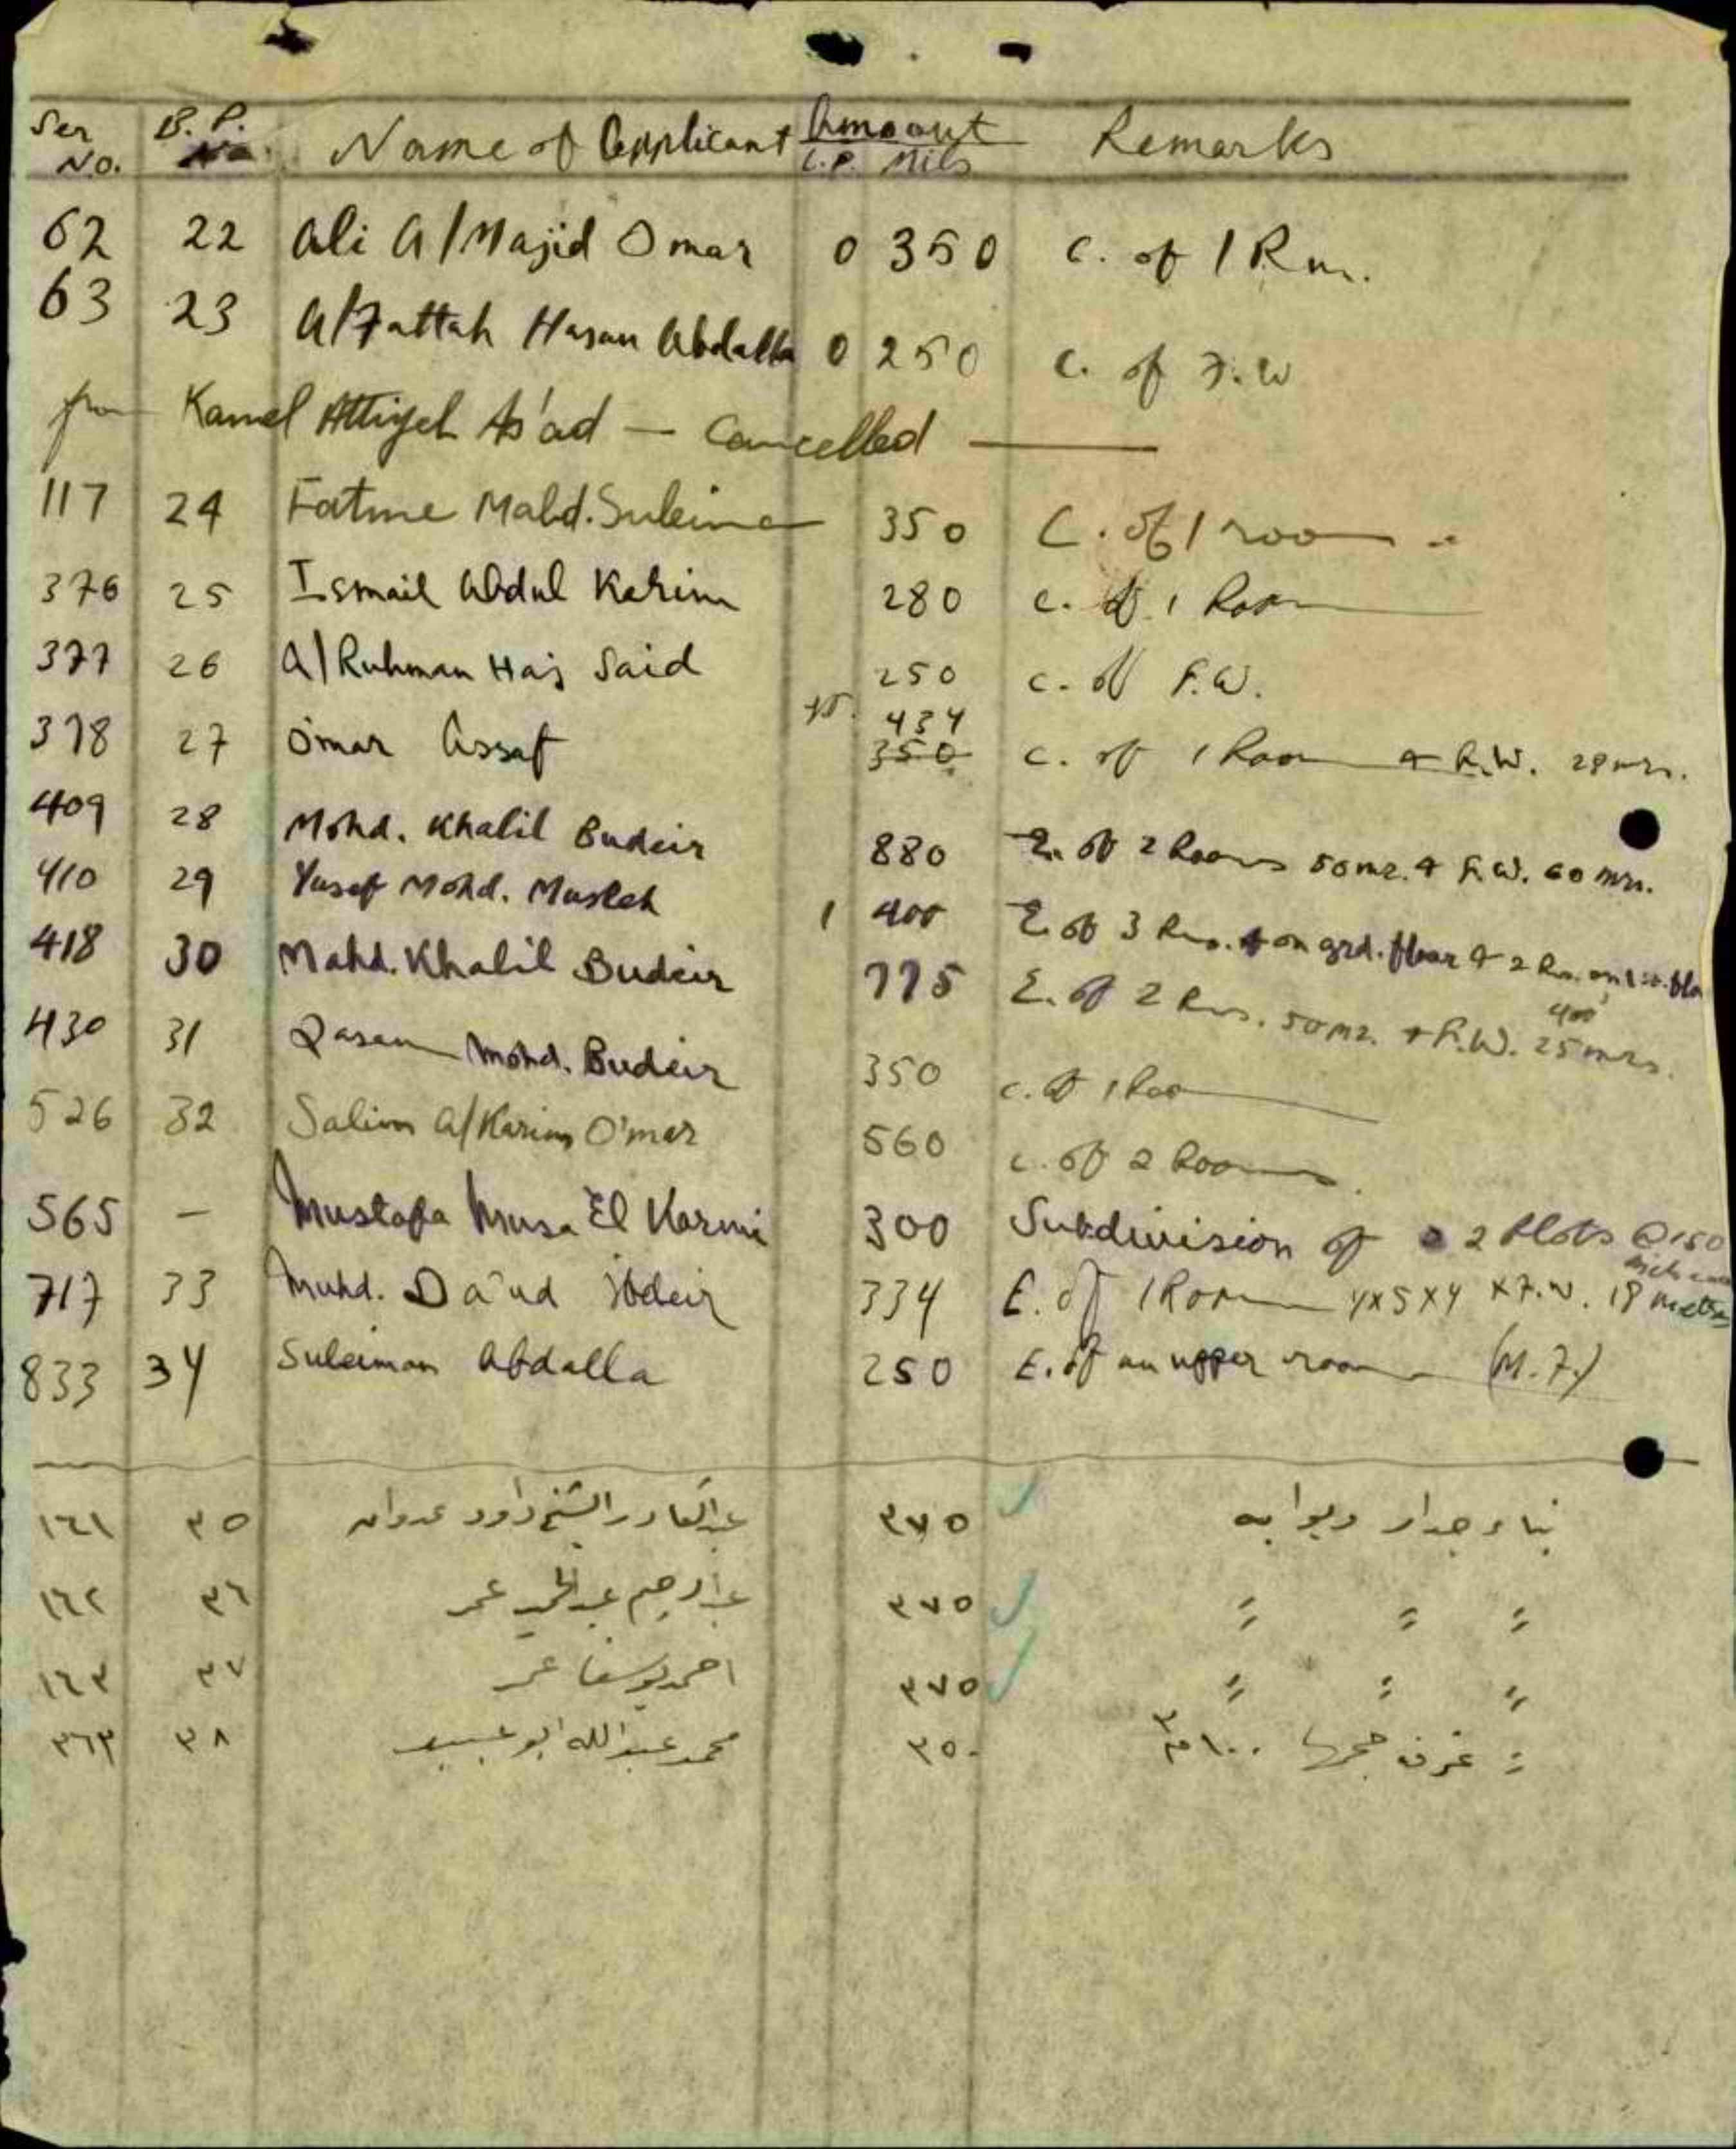 Ser No. B. P. No. Name of Applicant Amount L.P. Mils Remarks
62 22 Ali A/Majid Omar 0 350 C. of 1 Rm.
63 23 A/Fattah Hasan Abdalla 0 250 C. of F.W
Kamel Attiyeh As'ad — Cancelled —
117 24 Fatme Mahd. Suleiman 350 C. of 1 room
376 25 Ismail Abdul Karim 280 C. of 1 Room
377 26 A/Ruhman Haj Said 250 C. of F.W.
378 27 Omar Assaf 434 350 C. of 1 Room & F.W. 28 mrs.
409 28 Mohd. Khalil Budeir 880 E. of 2 Rooms 50 m2. & F.W. 60 mrs.
410 29 Yusef Mohd. Musleh 1 400 E. of 3 Rms. on grd. floor & 2 Rm. on 1st. flo
418 30 Mahd. Khalil Budeir 775 E. of 2 Rms. 50 m2. & F.W. 25 mrs.
400
430 31 Qasem Mohd. Budeir 350 C. of 1 Room
526 32 Salim A/Karim O'mar 560 C. of 2 Rooms.
565 — Mustafa Musa El Karmi 300 Subdivision of 2 Plots @ 150
717 33 Muhd. Da'ud Ibdeir 334 E. of 1 Room 4x5x4 x F.W. 18 metres
833 34 Suleiman Abdalla 250 E. of an upper room (M.F.)
١٦١ ٣٥ عبدالقادر الشيخ داود عدوان ٣٧٥ بناء جدار وبوابه
١٦٢ ٣٦ عبدالرحيم عبدالحميد عمر ٣٧٥ " " "
١٦٣ ٣٧ احمد يوسف عمر ٣٧٥ " " "
٣٦٣ ٣٨ محمد عبدالله ابو عبيد ٣٥٠ " غرف حجمها ١٠٠ م٣